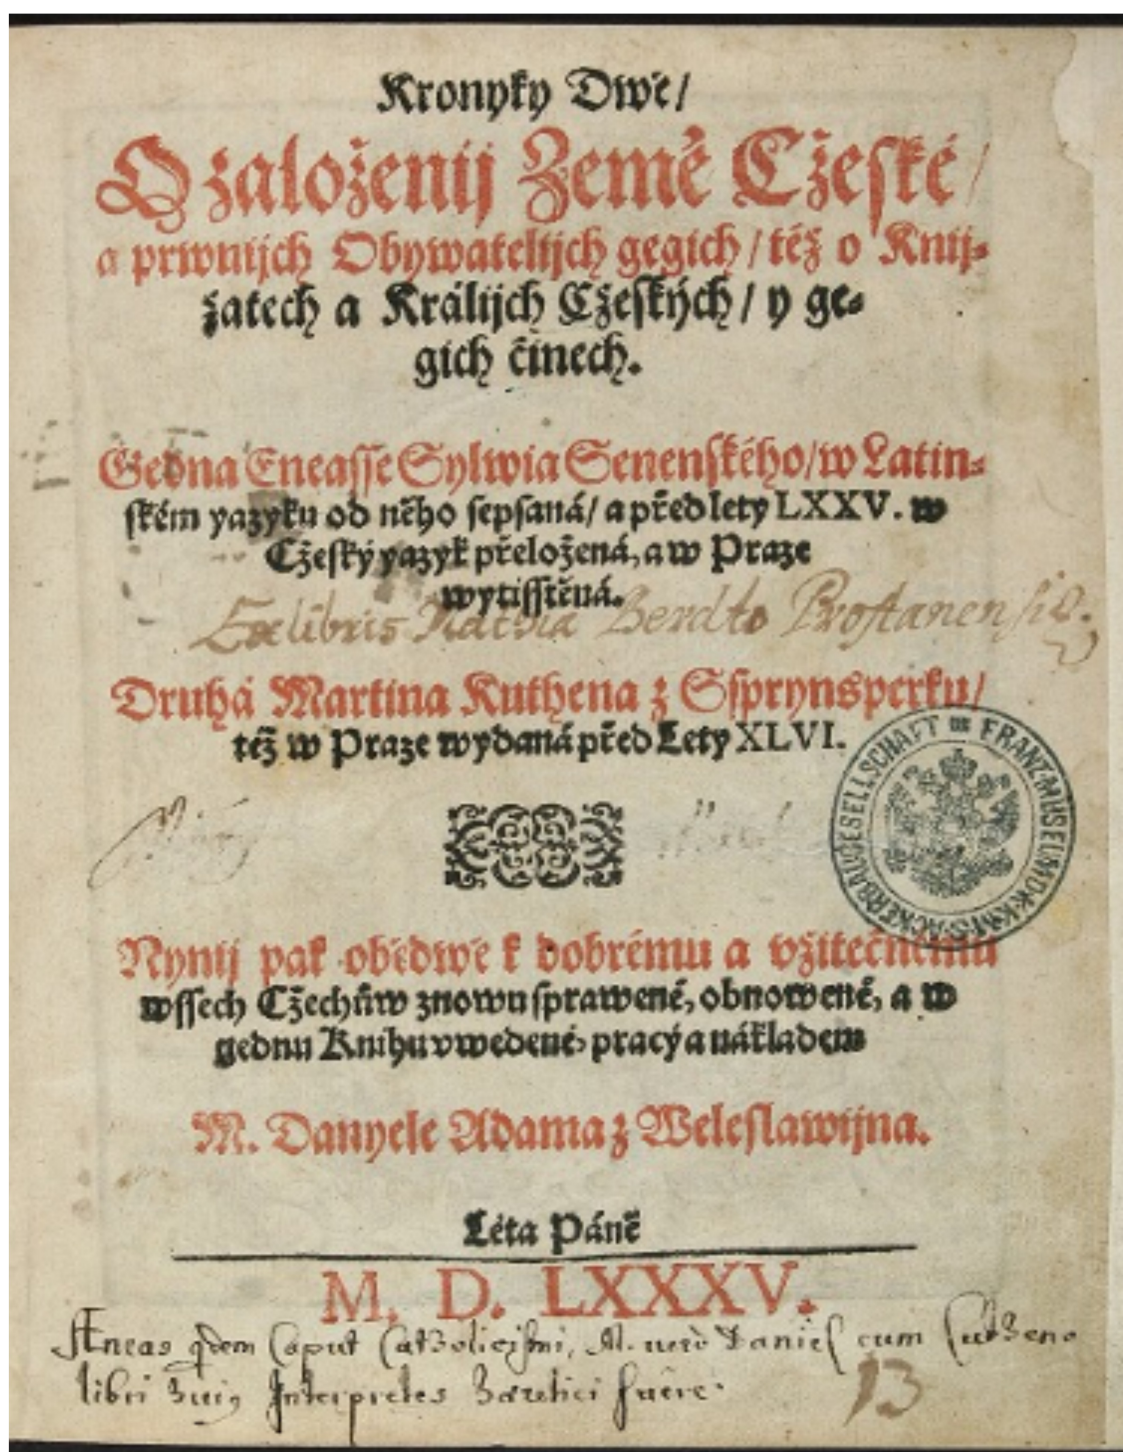 Kronyky Dwě/
O založenij Země Cžeské/
a prwnijch Obywatelijch gegich/ též o Knij-
žatech a Králijch Cžeských/ y ge-
gich činech.
Gedna Eneasse Sylwia Senenského/ w Latin-
ském yazyku od něho sepsaná/ a před lety LXXV. w
Cžeský yazyk přeložená, a w Praze
wytisstěná.
Ex libris Berdto Prostanensis.
Druhá Martina Kuthena z Ssprynsperku/
též w Praze wydaná před Lety XLVI.
FRANZ-MUSEUM D. K. K. M. S. ACKERBAUGESELLSCHAFT
Nynij pak obědwě k dobrému a vžitečnému
wssech Cžechůw znowu sprawené, obnowené, a w
gednu Knihu vwedené, pracý a nákladem
M. Danyele Adama z Weleslawijna.
Léta Páně
M. D. LXXXV.
Æneas qdem Caput Catholicismi, M. vero Daniel cum Cutheno
libri huius Interpretes hæretici fuêre.
13